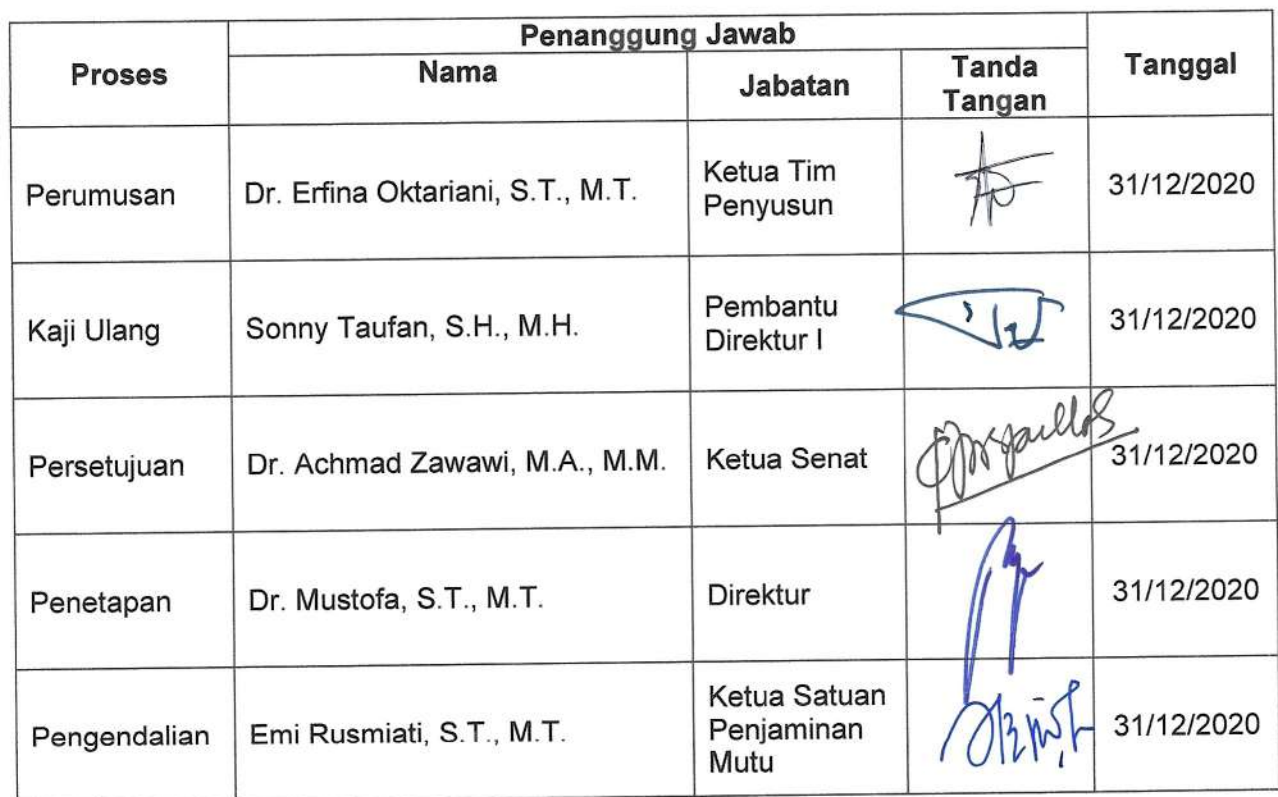 Proses
Penanggung Jawab
Tanggal
Nama
Jabatan
Tanda
Tangan
Perumusan
Dr. Erfina Oktariani, S.T., M.T.
Ketua Tim
Penyusun
31/12/2020
Kaji Ulang
Sonny Taufan, S.H., M.H.
Pembantu
Direktur I
31/12/2020
Persetujuan
Dr. Achmad Zawawi, M.A., M.M.
Ketua Senat
31/12/2020
Penetapan
Dr. Mustofa, S.T., M.T.
Direktur
31/12/2020
Pengendalian
Emi Rusmiati, S.T., M.T.
Ketua Satuan
Penjaminan
Mutu
31/12/2020